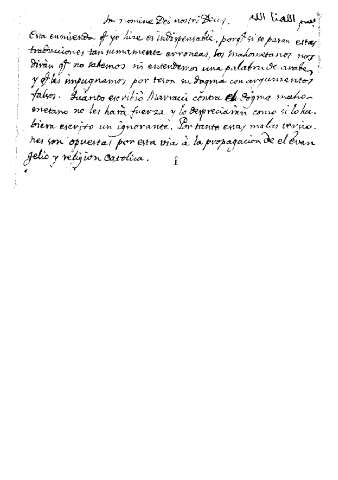 In nomine Dei nostri Jesus.
Esta enmienda q.e yo hize es indispensable, porq.e si se pasan estas
traducciones tan sumamente erroneas, los mahometanos nos
diran q.e no sabemos ni entendemos una palabra de arabe,
y q.e les impugnamos por teson su dogma con argumentos
falsos. Quanto escribió Marracci contra el dogma maho-
metano no les hará fuerza, y lo despreciarán como si lo hu-
biera escrito un ignorante. Por tanto estas malas versio-
nes son opuestas por esta via à la propagacion de el evan
gelio y religion catolica.